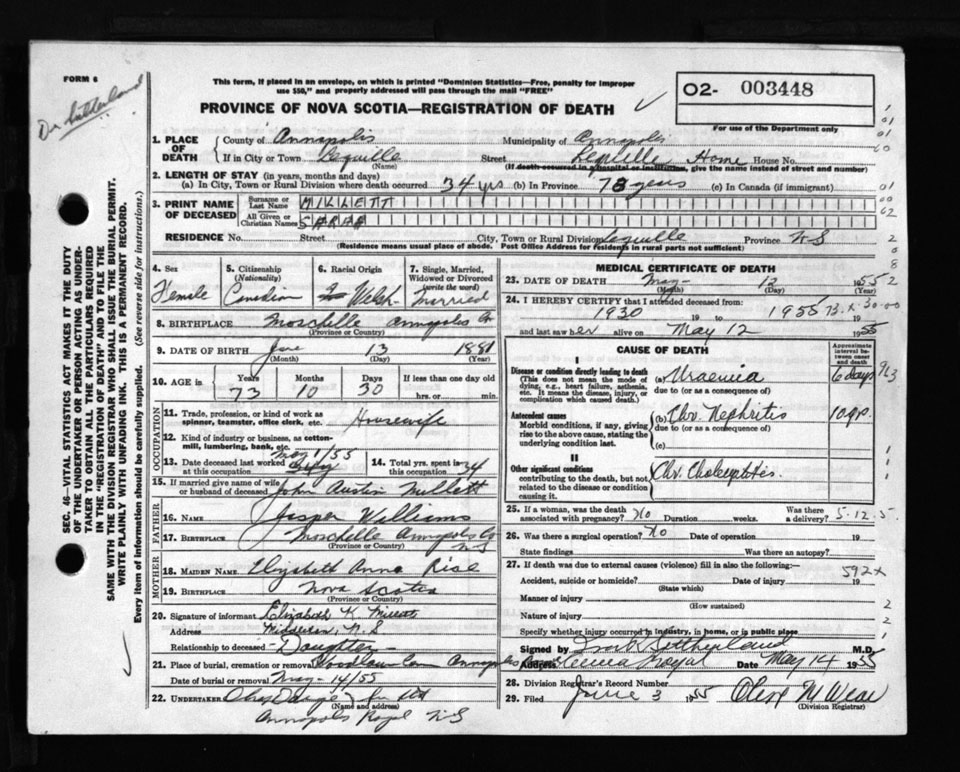 FORM 6
Dr Sutherland
This form, if placed in an envelope, on which is printed "Dominion Statistics—Free, penalty for improper
use $50," and properly addressed will pass through the mail "FREE"
PROVINCE OF NOVA SCOTIA—REGISTRATION OF DEATH
O2- 003448
For use of the Department only
SEC. 46—VITAL STATISTICS ACT MAKES IT THE DUTY
OF THE UNDERTAKER OR PERSON ACTING AS UNDER-
TAKER TO OBTAIN ALL THE PARTICULARS REQUIRED
IN THE "REGISTRATION OF DEATH" AND TO FILE THE
SAME WITH THE DIVISION REGISTRAR WHO SHALL ISSUE THE BURIAL PERMIT.
WRITE PLAINLY WITH UNFADING INK. THIS IS A PERMANENT RECORD.
Every item of information should be carefully supplied. (See reverse side for instructions.)
1. PLACE OF DEATH
County of Annapolis Municipality of Annapolis
If in City or Town Lequille Street Lequille Home House No.
(Name) (If death occurred in a hospital or institution, give the name instead of street and number)
2. LENGTH OF STAY (in years, months and days)
(a) In City, Town or Rural Division where death occurred 34 yrs (b) In Province 73 years (c) In Canada (if immigrant)
3. PRINT NAME OF DECEASED
Surname or Last Name MILLETT
All Given or Christian Names SARAH
RESIDENCE No. Street City, Town or Rural Division Lequille Province N S
(Residence means usual place of abode. Post Office Address for residents in rural parts not sufficient)
4. Sex Female
5. Citizenship (Nationality) Canadian
6. Racial Origin Welsh
7. Single, Married, Widowed or Divorced (write the word) Married
8. BIRTHPLACE Moschelle Annapolis Co
(Province or Country)
9. DATE OF BIRTH June 13 1881
(Month) (Day) (Year)
10. AGE in Years Months Days If less than one day old
73 10 30 hrs. or min.
OCCUPATION
11. Trade, profession, or kind of work as spinner, teamster, office clerk, etc. Housewife
12. Kind of industry or business, as cotton-mill, lumbering, bank, etc.
13. Date deceased last worked at this occupation May 1/55
14. Total yrs. spent in this occupation 34
15. If married give name of wife or husband of deceased John Austin Millett
FATHER
16. NAME Jasper Williams
17. BIRTHPLACE Moschelle Annapolis Co N S
(Province or Country)
MOTHER
18. MAIDEN NAME Elizabeth Anna Rice
19. BIRTHPLACE Nova Scotia
(Province or Country)
20. Signature of informant Elizabeth K Millett
Address Middleton, N.S
Relationship to deceased Daughter
21. Place of burial, cremation or removal Woodlawn Cem Annapolis
Date of burial or removal May 14/55
22. UNDERTAKER
(Name and address)
Annapolis Royal N S
MEDICAL CERTIFICATE OF DEATH
23. DATE OF DEATH May 13 1955
24. I HEREBY CERTIFY that I attended deceased from:
1930 to 1955
and last saw her alive on May 12 1955
CAUSE OF DEATH
Approximate interval between onset and death
I
Disease or condition directly leading to death
(This does not mean the mode of dying, e.g., heart failure, asthenia, etc. It means the disease, injury, or complication which caused death.)
(a) Uraemia 6 days
due to (or as a consequence of)
Antecedent causes
Morbid conditions, if any, giving rise to the above cause, stating the underlying condition last.
(b) Chr. Nephritis 10 yrs.
due to (or as a consequence of)
(c)
II
Other significant conditions
contributing to the death, but not related to the disease or condition causing it.
25. If a woman, was the death associated with pregnancy? No Duration weeks. Was there a delivery?
5-12.5.
26. Was there a surgical operation? No Date of operation 19
State findings Was there an autopsy?
27. If death was due to external causes (violence) fill in also the following:—
592x
Accident, suicide or homicide? Date of injury 19
(State which)
Manner of injury
(How sustained)
Nature of injury
Specify whether injury occurred in industry, in home, or in public place
Signed Sutherland M.D.
Address Annapolis Royal Date May 14 1955
28. Division Registrar's Record Number
29. Filed June 3 1955 Olive M Wear
(Division Registrar)